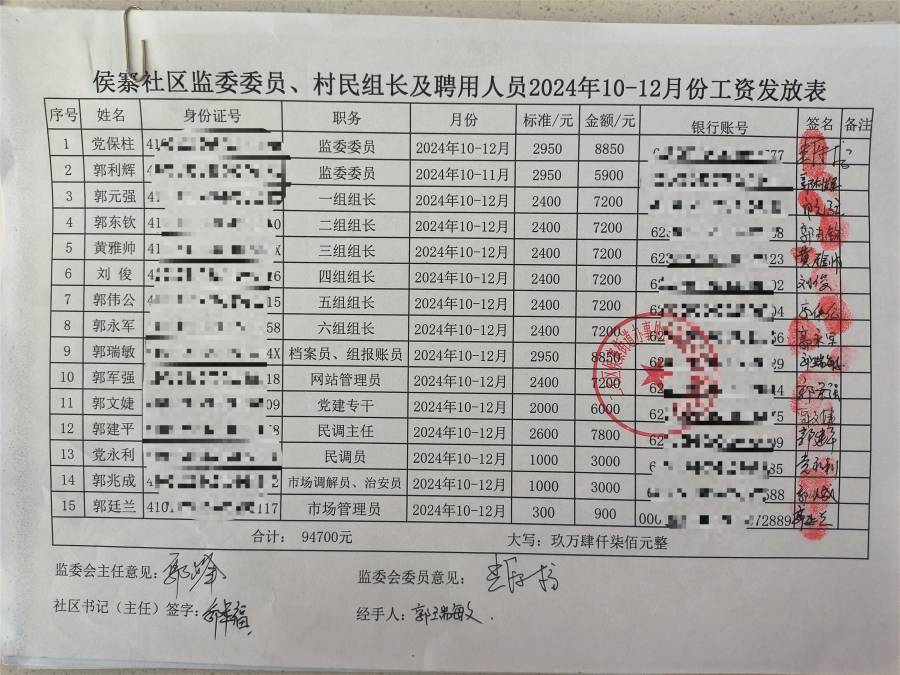 侯寨社区监委委员、村民组长及聘用人员2024年10-12月份工资发放表
序号 姓名 身份证号 职务 月份 标准/元 金额/元 银行账号 签名 备注
1 党保柱 41 监委委员 2024年10-12月 2950 8850 77
2 郭利辉 4 监委委员 2024年10-11月 2950 5900
3 郭元强 41 一组组长 2024年10-12月 2400 7200
4 郭东钦 4 0 二组组长 2024年10-12月 2400 7200 62 8 郭东钦
5 黄雅帅 41 X 三组组长 2024年10-12月 2400 7200 62 123 黄雅帅
6 刘 俊 4 6 四组组长 2024年10-12月 2400 7200 02 刘俊
7 郭伟公 4 15 五组组长 2024年10-12月 2400 7200 62 04
8 郭永军 58 六组组长 2024年10-12月 2400 7200 6 郭永军
9 郭瑞敏 4X 档案员、组报账员 2024年10-12月 2950 8850 62 9 郭瑞敏
10 郭军强 18 网站管理员 2024年10-12月 2400 7200 62
11 郭文婕 09 党建专干 2024年10-12月 2000 6000 62 5
12 郭建平 8 民调主任 2024年10-12月 2600 7800 62 09 郭建平
13 党永利 民调员 2024年10-12月 1000 3000 6 35 党永利
14 郭兆成 4 2 市场调解员、治安员 2024年10-12月 1000 3000 6 588
15 郭廷兰 410 117 市场管理员 2024年10-12月 300 900 00 72889
合计： 94700元 大写：玖万肆仟柒佰元整
监委会主任意见： 监委会委员意见：
社区书记（主任）签字： 经手人：郭瑞敏.